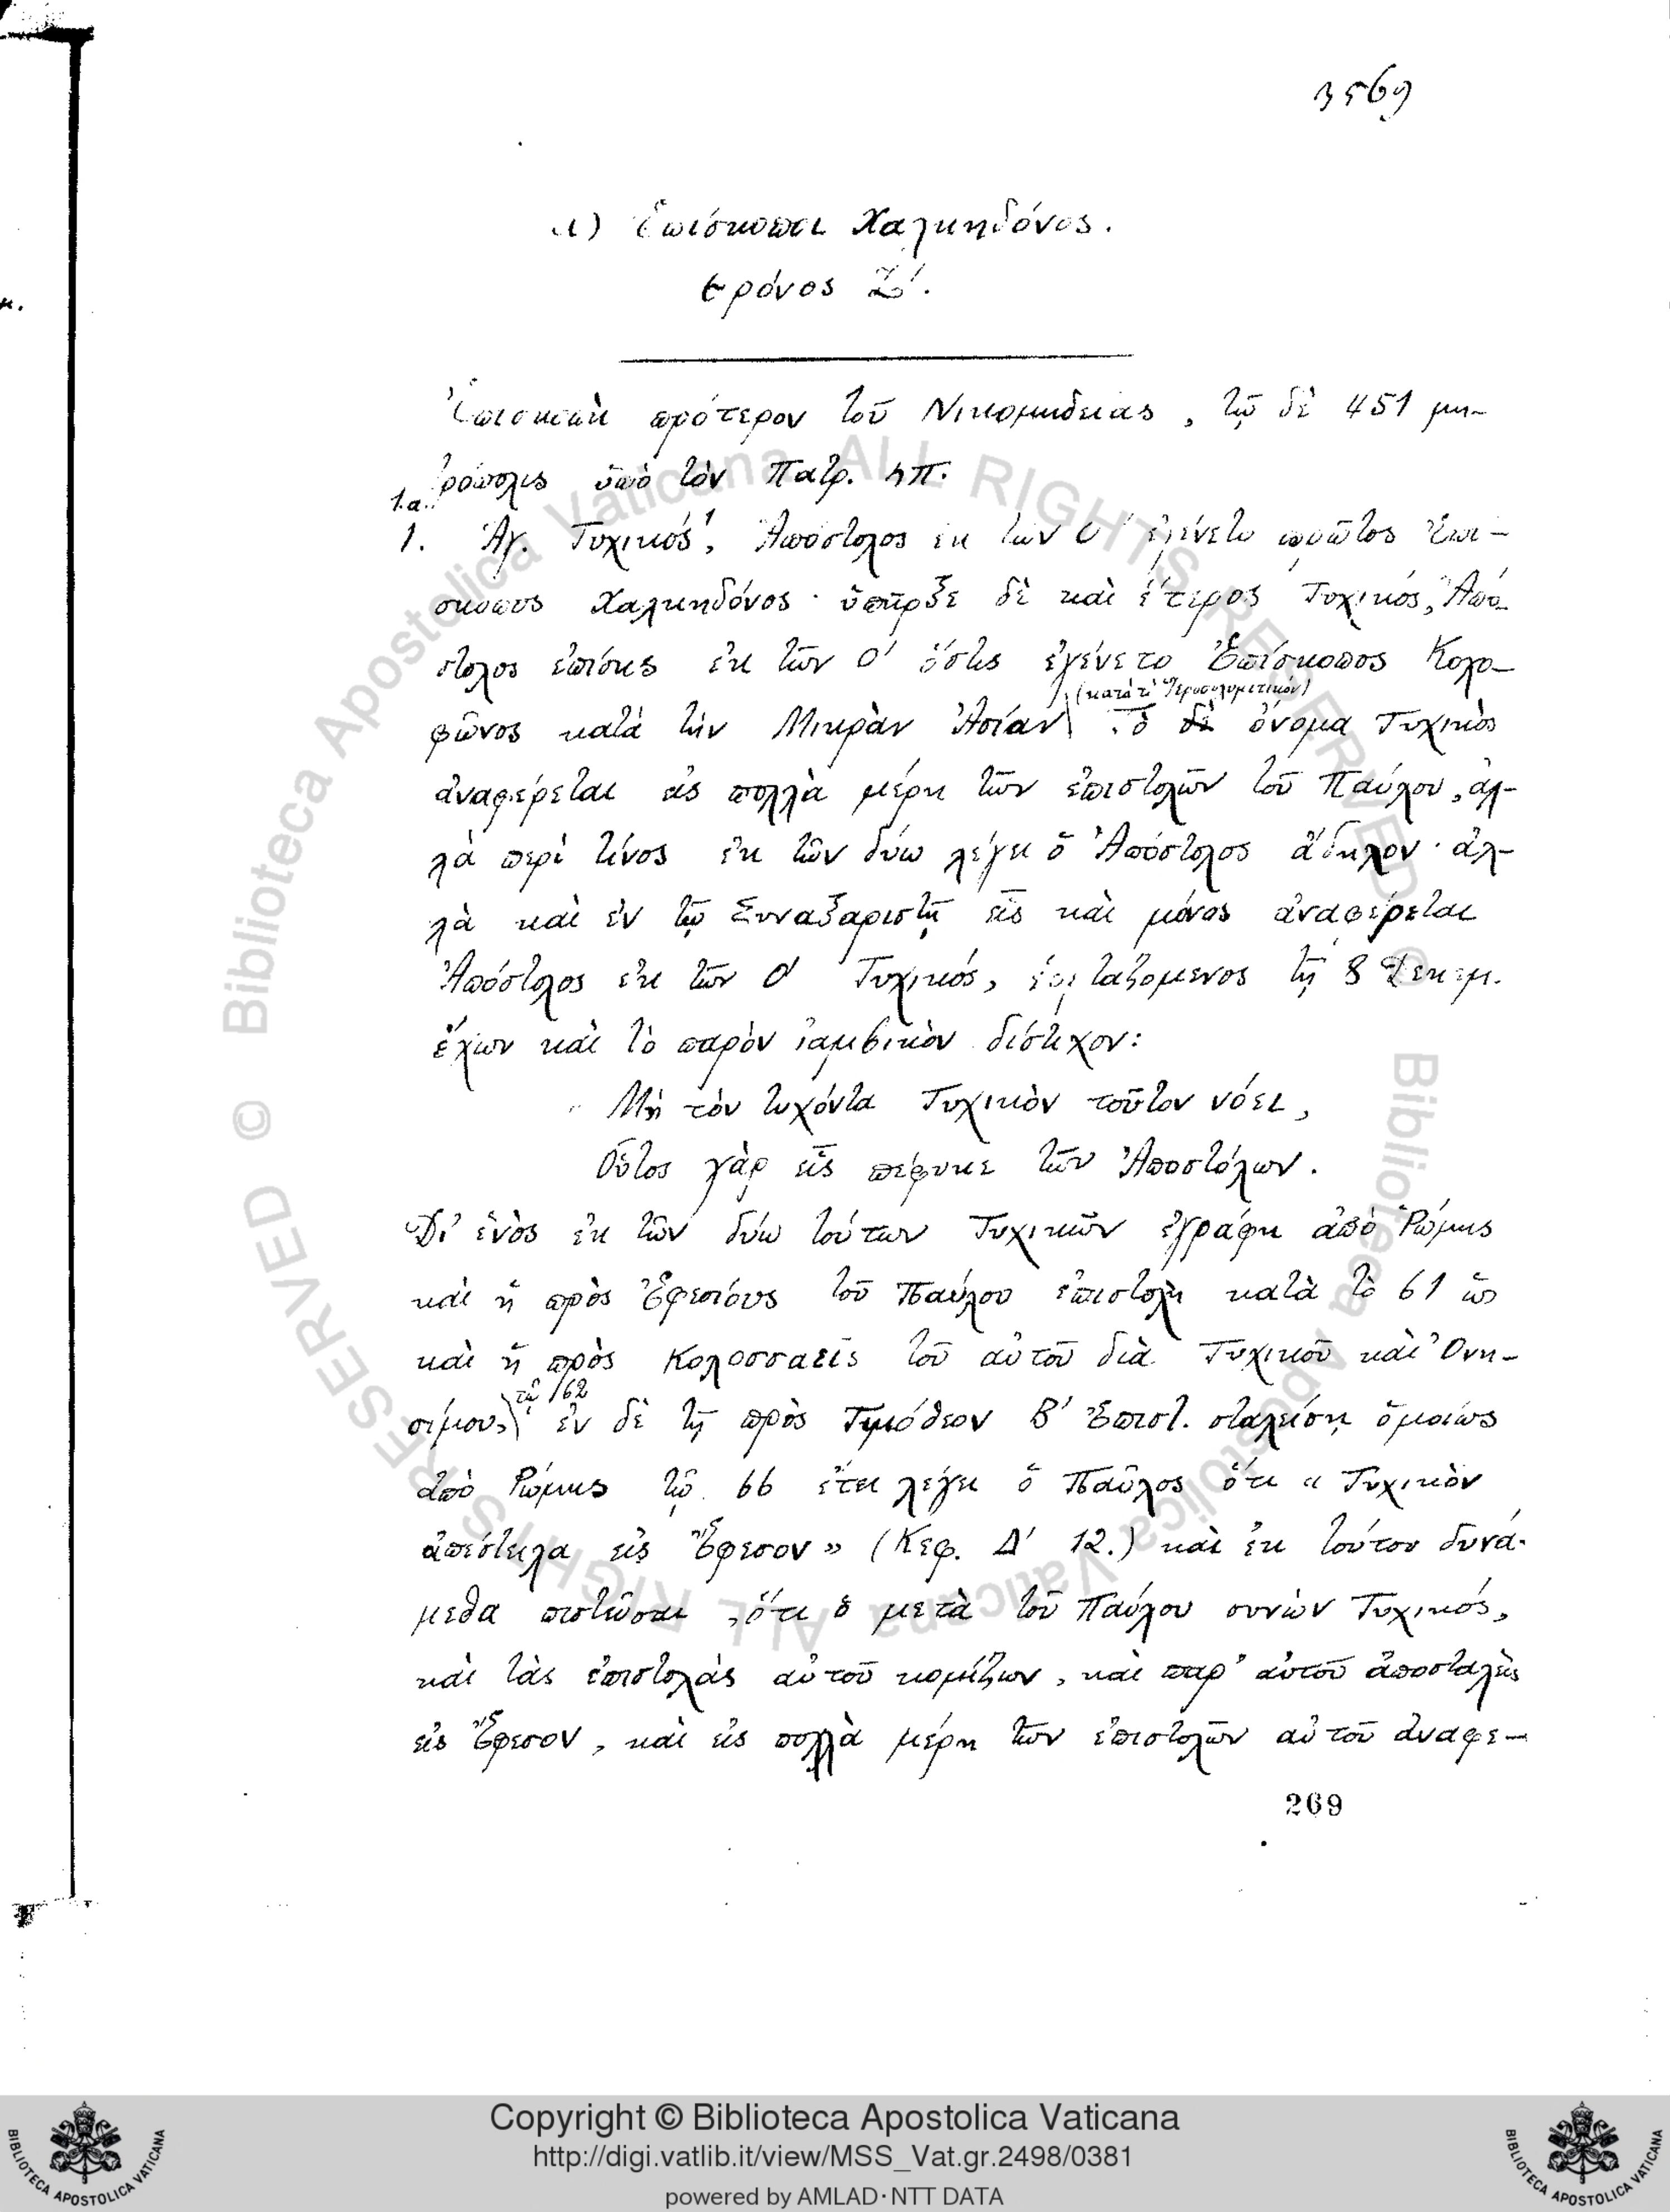 3569
α) Ἐπίσκοποι Χαλκηδόνος.
θρόνος Ζ΄.
Ἐπισκοπὴ πρότερον τοῦ Νικομηδείας, τῷ δὲ 451 μη-
τρόπολις ὑπὸ τὸν Πατρ. ΚΠ.
1.α.
1. Ἁγ. Τυχικός, Ἀπόστολος ἐκ τῶν Ο΄ ἐγένετο πρῶτος Ἐπί-
σκοπος Χαλκηδόνος· ὑπῆρξε δὲ καὶ ἕτερος Τυχικός, Ἀπό-
στολος ἐπίσης ἐκ τῶν Ο΄ ὅστις ἐγένετο Ἐπίσκοπος Κολο-
(κατὰ τὸ Ἱεροσολυμιτικόν)
φῶνος κατὰ τὴν Μικρὰν Ἀσίαν. Τὸ δὲ ὄνομα Τυχικὸς
ἀναφέρεται εἰς πολλὰ μέρη τῶν ἐπιστολῶν τοῦ Παύλου, ἀλ-
λὰ περὶ τίνος ἐκ τῶν δύω λέγει ὁ Ἀπόστολος ἄδηλον· ἀλ-
λὰ καὶ ἐν τῷ Συναξαριστῇ εἷς καὶ μόνος ἀναφέρεται
Ἀπόστολος ἐκ τῶν Ο΄ Τυχικός, ἑορταζόμενος τῇ 8 Δεκεμ.
ἔχων καὶ τὸ παρὸν ἰαμβικὸν δίστιχον:
Μὴ τὸν τυχόντα Τυχικὸν τοῦτον νόει,
Οὗτος γὰρ εἷς πέφυκε τῶν Ἀποστόλων.
Δι’ ἑνὸς ἐκ τῶν δύω τούτων Τυχικῶν ἐγράφη ἀπὸ Ῥώμης
καὶ ἡ πρὸς Ἐφεσίους τοῦ Παύλου ἐπιστολὴ κατὰ τὸ 61 ὡς
καὶ ἡ πρὸς Κολοσσαεῖς τοῦ αὐτοῦ διὰ Τυχικοῦ καὶ Ὀνη-
τῷ 62
σίμου, ἐν δὲ τῇ πρὸς Τιμόθεον Β΄ Ἐπιστ. σταλείσῃ ὁμοίως
ἀπὸ Ῥώμης τῷ 66 ἔτει λέγει ὁ Παῦλος ὅτι « Τυχικὸν
ἀπέστειλα εἰς Ἔφεσον» (Κεφ. Δ΄ 12.) καὶ ἐκ τούτου δυνά-
μεθα πιστῶσαι, ὅτι ὁ μετὰ τοῦ Παύλου συνὼν Τυχικός,
καὶ τὰς ἐπιστολὰς αὐτοῦ κομίζων, καὶ παρ’ αὐτοῦ ἀποσταλεὶς
εἰς Ἔφεσον, καὶ εἰς πολλὰ μέρη τῶν ἐπιστολῶν αὐτοῦ ἀναφε-
269
© Biblioteca Apostolica Vaticana ALL RIGHTS RESERVED
© Biblioteca Apostolica Vaticana ALL RIGHTS RESERVED
Copyright © Biblioteca Apostolica Vaticana
http://digi.vatlib.it/view/MSS_Vat.gr.2498/0381
powered by AMLAD·NTT DATA
BIBLIOTECA APOSTOLICA VATICANA
BIBLIOTECA APOSTOLICA VATICANA